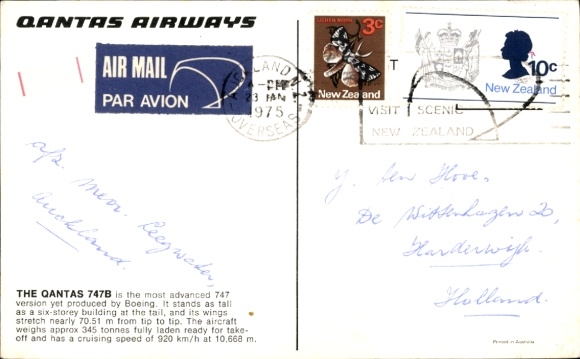 QANTAS AIRWAYS
AIR MAIL
PAR AVION
23 JAN
1975
OVERSEAS
LICHEN MOTH
3c
New Zealand
10c
New Zealand
VISIT SCENIC
NEW ZEALAND
Auckland.
Y. ten Hove,
De Wittenhagen 20,
Harderwijk.
Holland.
THE QANTAS 747B is the most advanced 747
version yet produced by Boeing. It stands as tall
as a six-storey building at the tail, and its wings
stretch nearly 70.51 m from tip to tip. The aircraft
weighs approx 345 tonnes fully laden ready for take-
off and has a cruising speed of 920 km/h at 10,668 m.
Printed in Australia